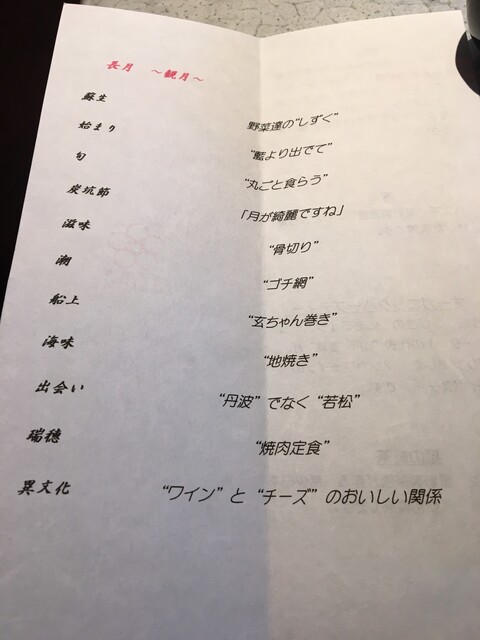 長月 ～観月～
蘇生 野菜達の“しずく”
始まり “藍より出でて”
旬 “丸ごと食らう”
炭坑節 「月が綺麗ですね」
滋味 “骨切り”
潮 “ゴチ網”
船上 “玄ちゃん巻き”
海味 “地焼き”
出会い “丹波”でなく“若松”
瑞穂 “焼肉定食”
異文化 “ワイン”と“チーズ”のおいしい関係